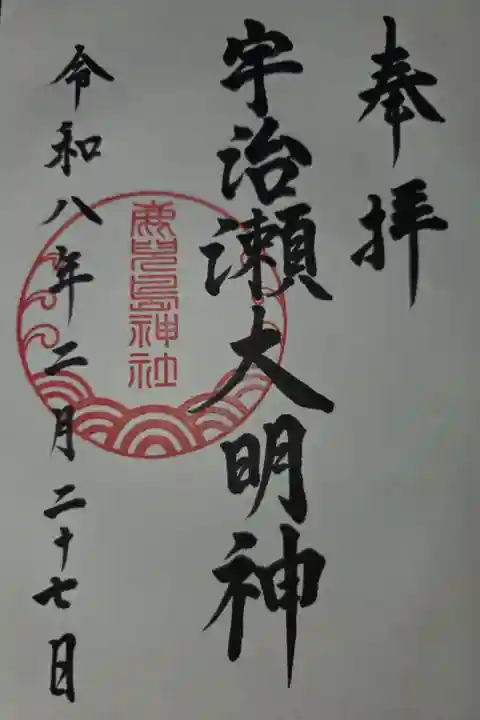 奉拝
宇治瀬大明神
鹿児島神社
令和八年二月二十七日